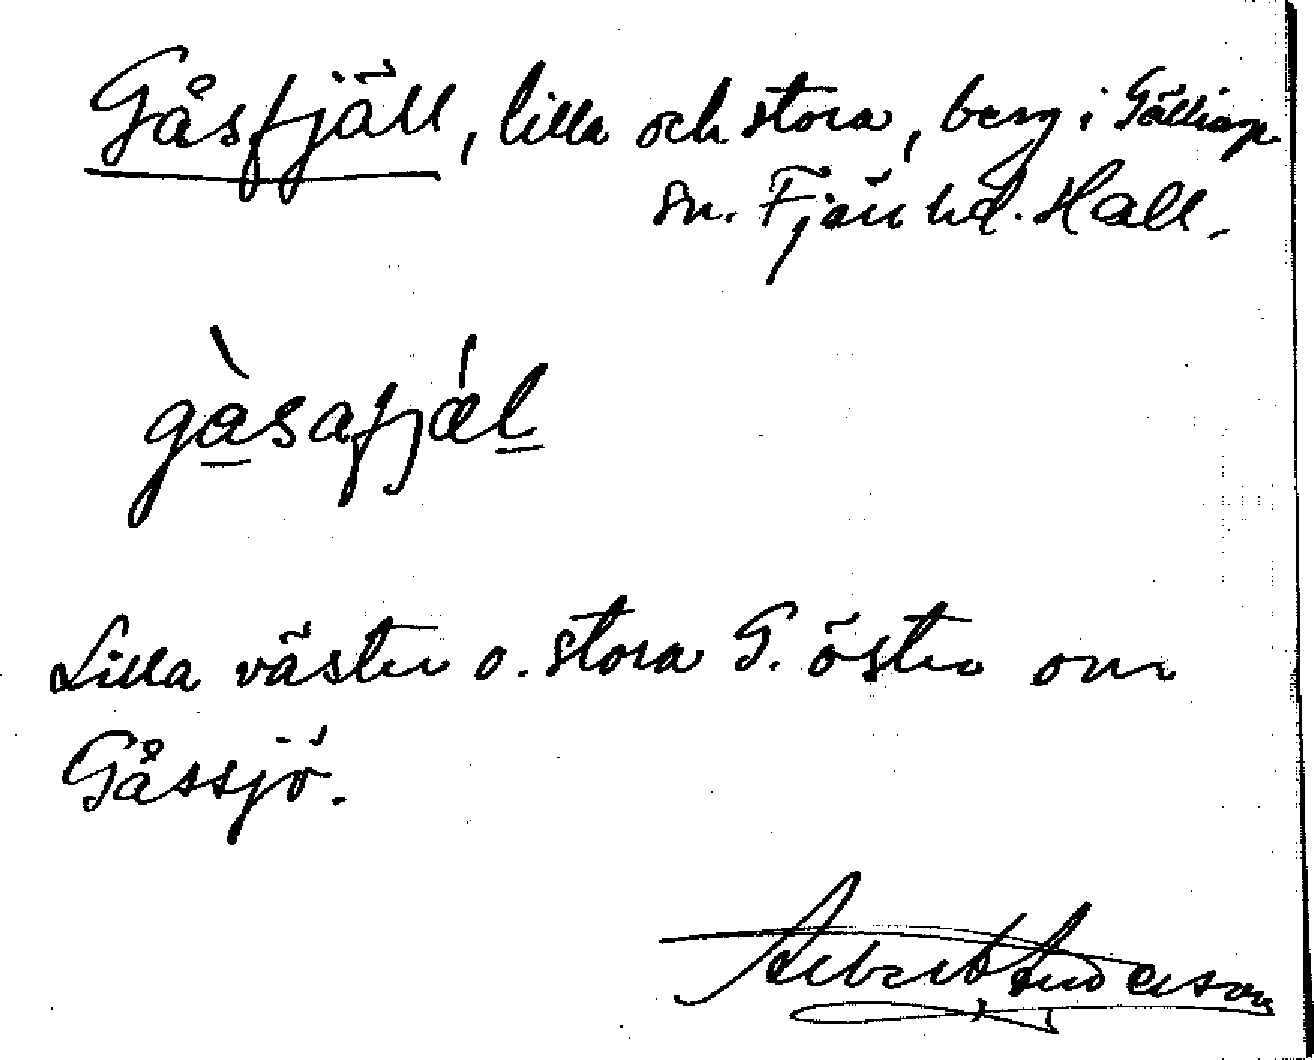 Gåsfjäll, lilla och stora, berg i Gällinge
sn. Fjäre hd. Hall.
gàsafjǽl
Lilla väster o. stora G. öster om
Gåssjö.
Albert Anderson